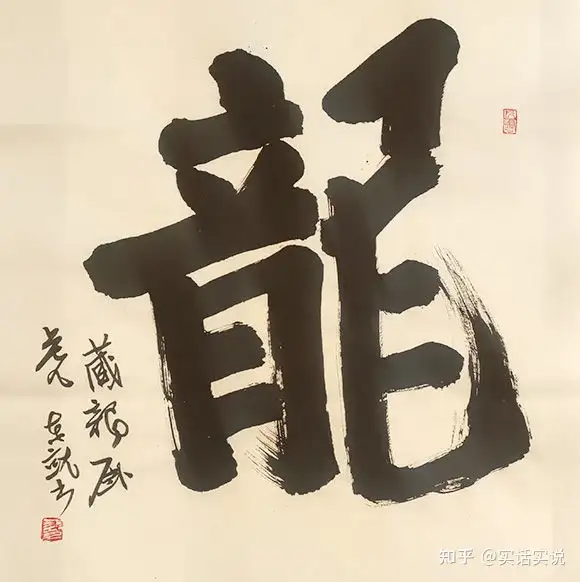 龍
藏龍臥
虎
知乎 @实话实说